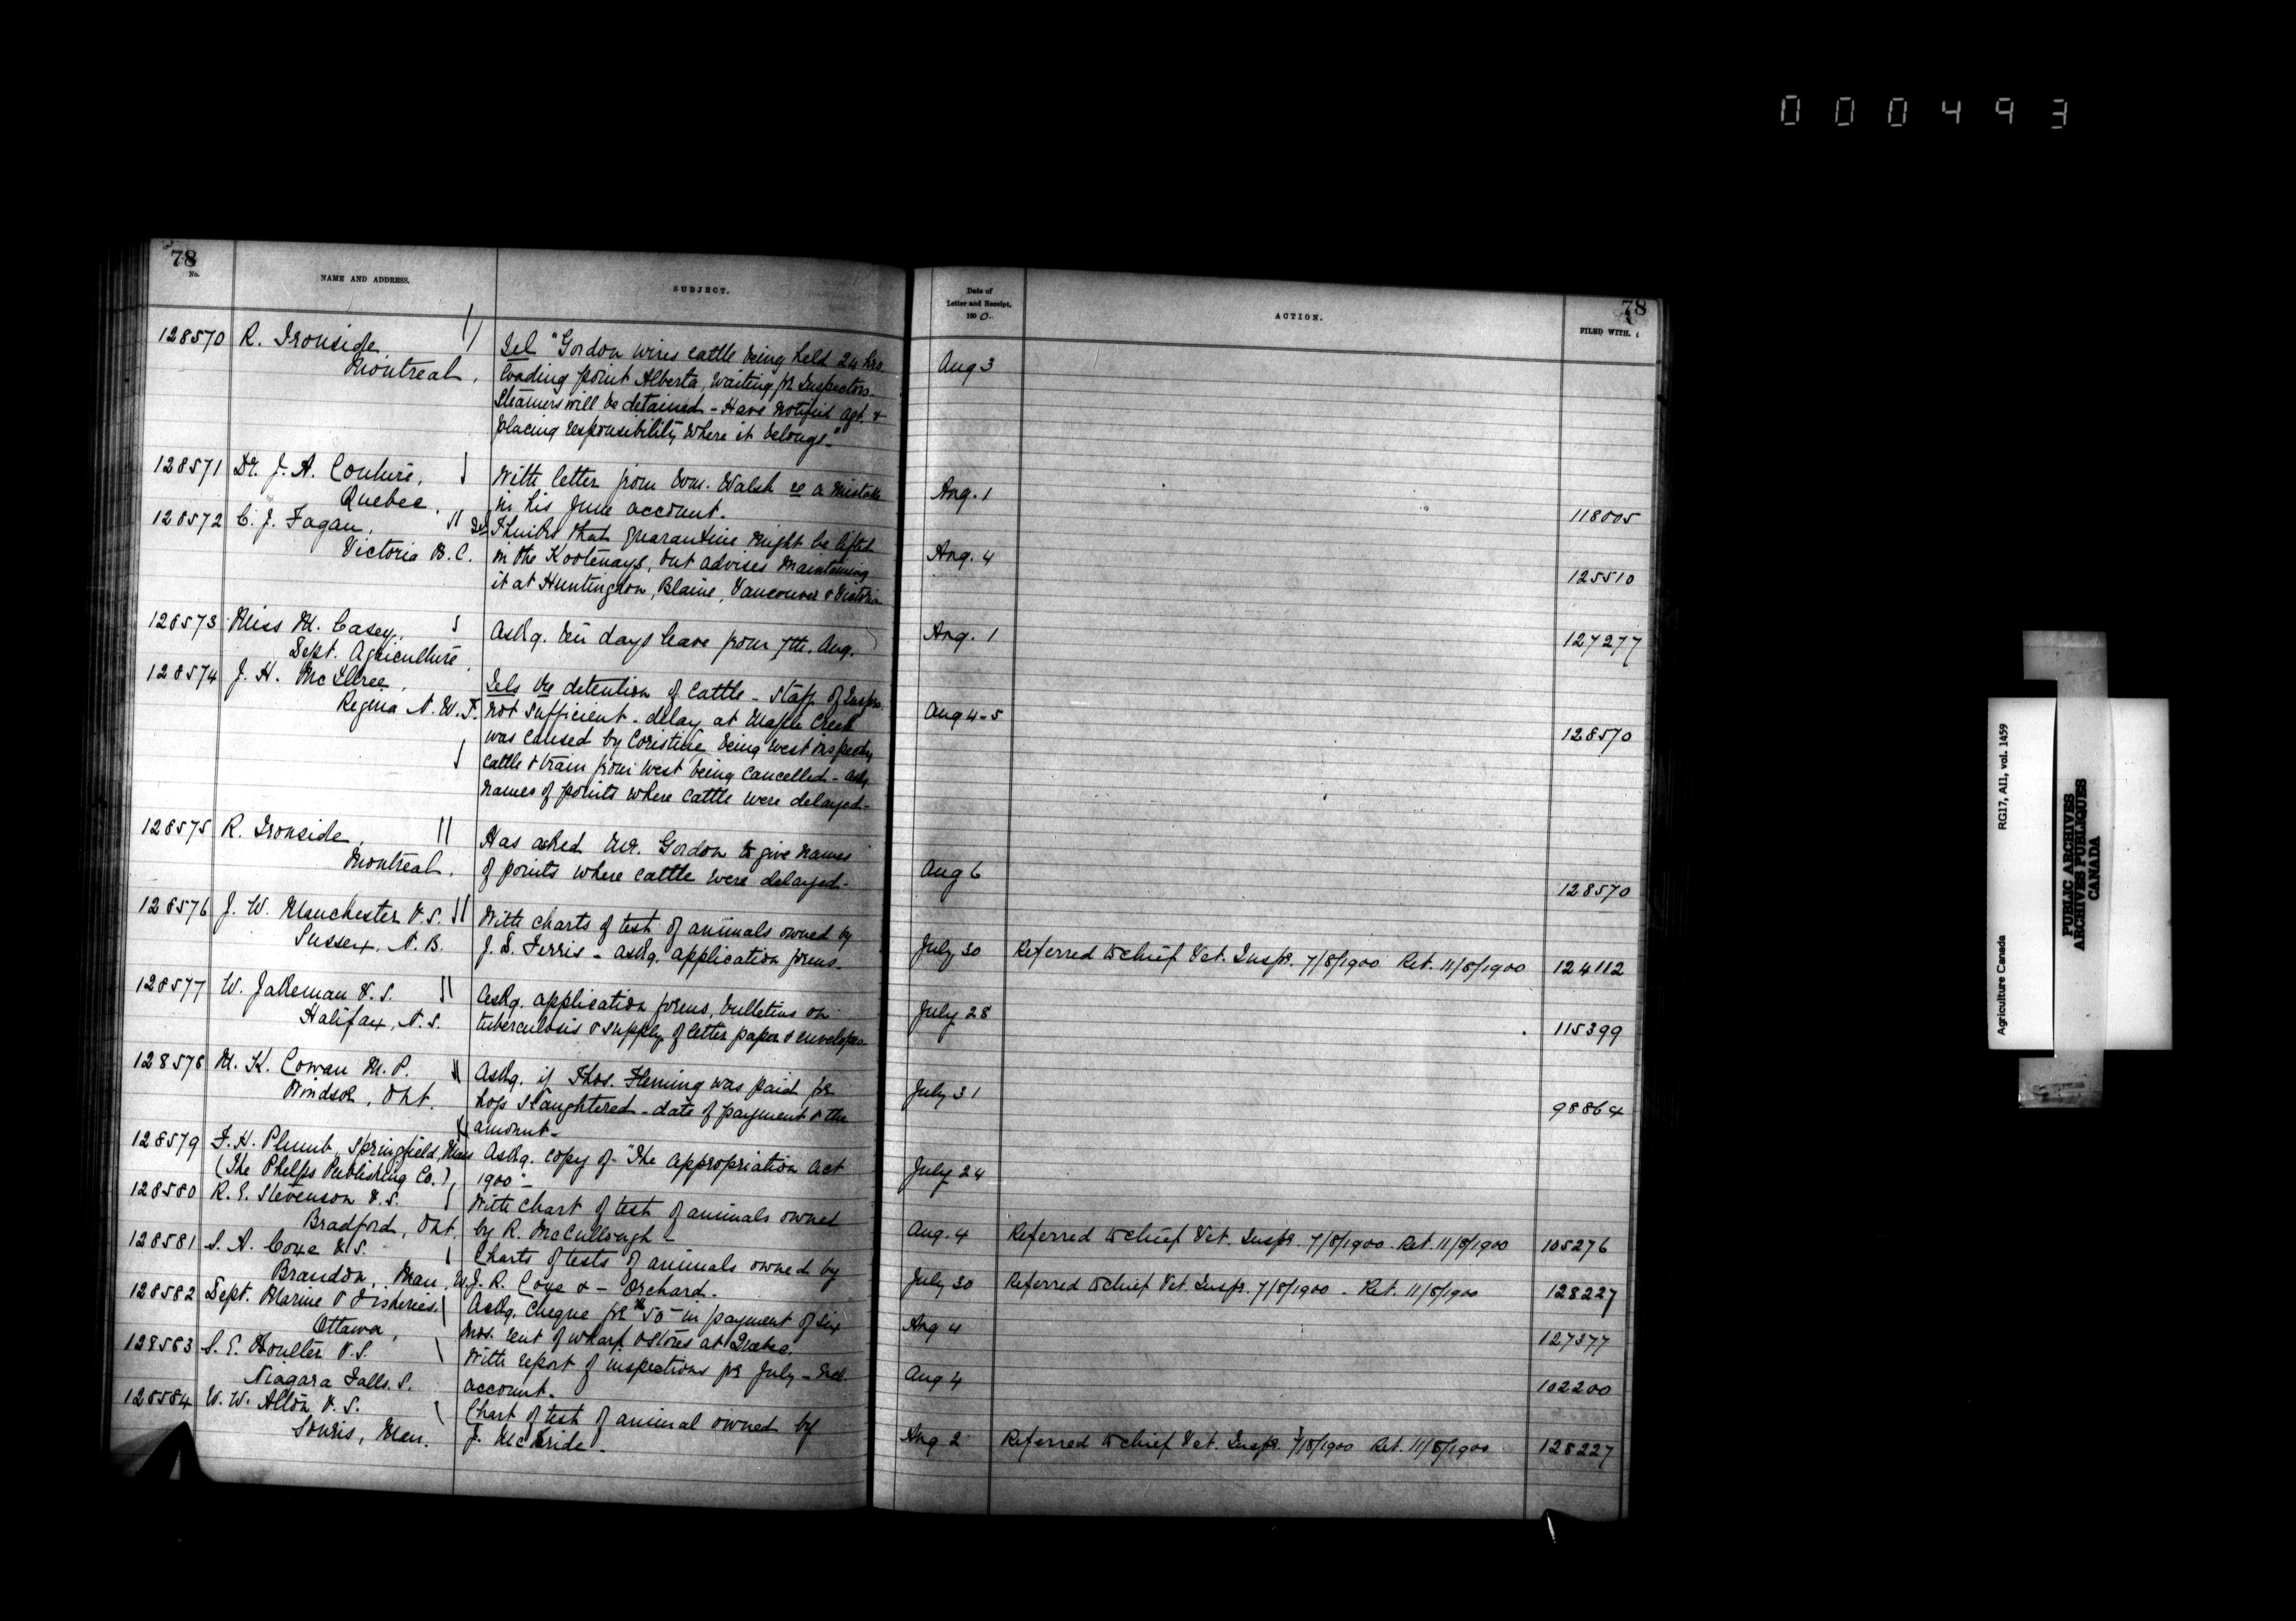 000493
78
No.
NAME AND ADDRESS.
SUBJECT.
128570 R. Ironside,
Montreal,
Tel "Gordon wires cattle being held 24 hrs
loading point Alberta, waiting for Inspectors.
Steamers will be detained - Have notified Agt. &
placing responsibility where it belongs."
128571 Dr. J. A. Couture,
Quebec.
With letter from Wm. Walsh re a mistake
in his June account.
128572 C. J. Fagan,
Victoria B. C.
Tel Thinks that quarantine might be lifted
in the Kootenays, but advises maintaining
it at Huntingdon, Blaine, Vancouver & Victoria
128573 Miss M. Casey,
Dept. Agriculture.
Askg. ten days leave from 7th. Aug.
128574 J. H. McIllree,
Regina N. W. T.
Tels re detention of cattle - Staff of Insprs.
not sufficient - delay at Maple Creek
was caused by Coristine being west inspecting
cattle & train from west being cancelled - askg.
names of points where cattle were delayed -
128575 R. Ironside,
Montreal.
Has asked Mr. Gordon to give names
of points where cattle were delayed -
128576 J. W. Manchester V.S.
Sussex. N. B.
With charts of test of animals owned by
J. S. Ferris - askg. application forms.
128577 W. Jakeman V.S.
Halifax, N. S.
Askg. application forms, bulletins on
tuberculosis & supply of letter paper & envelopes
128578 M. K. Cowan M. P.
Windsor, Ont.
Askg. if Thos. Fleming was paid for
hogs slaughtered - date of payment & the
amount -
128579 F. H. Plumb, Springfield, Mass
(The Phelps Publishing Co.),
Askg. copy of "The Appropriation Act
1900" -
128580 R. E. Stevenson V.S.
Bradford, Ont.
With chart of test of animals owned
by R. McCullough -
128581 S. A. Coxe V.S.
Brandon, Man.
Charts of tests of animals owned by
W. J. R. Coxe & - Orchard.
128582 Dept. Marine & Fisheries.
Ottawa,
Askg. cheque for $50 - in payment of six
mos. rent of wharf & stores at Quebec.
128583 S. E. Boulter V.S.
Niagara Falls. S.
With report of inspections for July - Incl.
account -
128584 W. W. Alton V.S.
Souris, Man.
Chart of test of animal owned by
J. McBride -
78
Date of
Letter and Receipt,
1900.
ACTION.
FILED WITH.
Aug 3
Aug. 1
118005
Aug. 4
125510
Aug. 1
127277
Aug 4-5
128570
Aug 6
128570
July 30 Referred to Chief Vet. Inspr. 7/8/1900 Ret. 11/8/1900 124112
July 28
115399
July 31
98864
July 24
Aug. 4 Referred to Chief Vet. Inspr. 7/8/1900 - Ret. 11/8/1900 105276
July 30 Referred to Chief Vet. Inspr. 7/8/1900 - Ret. 11/8/1900 128227
Aug 4
127377
Aug 4
102200
Aug 2 Referred to Chief Vet. Inspr. 7/8/1900 Ret. 11/8/1900 128227
Agriculture Canada RG17, AII, vol. 1459
PUBLIC ARCHIVES
ARCHIVES PUBLIQUES
CANADA